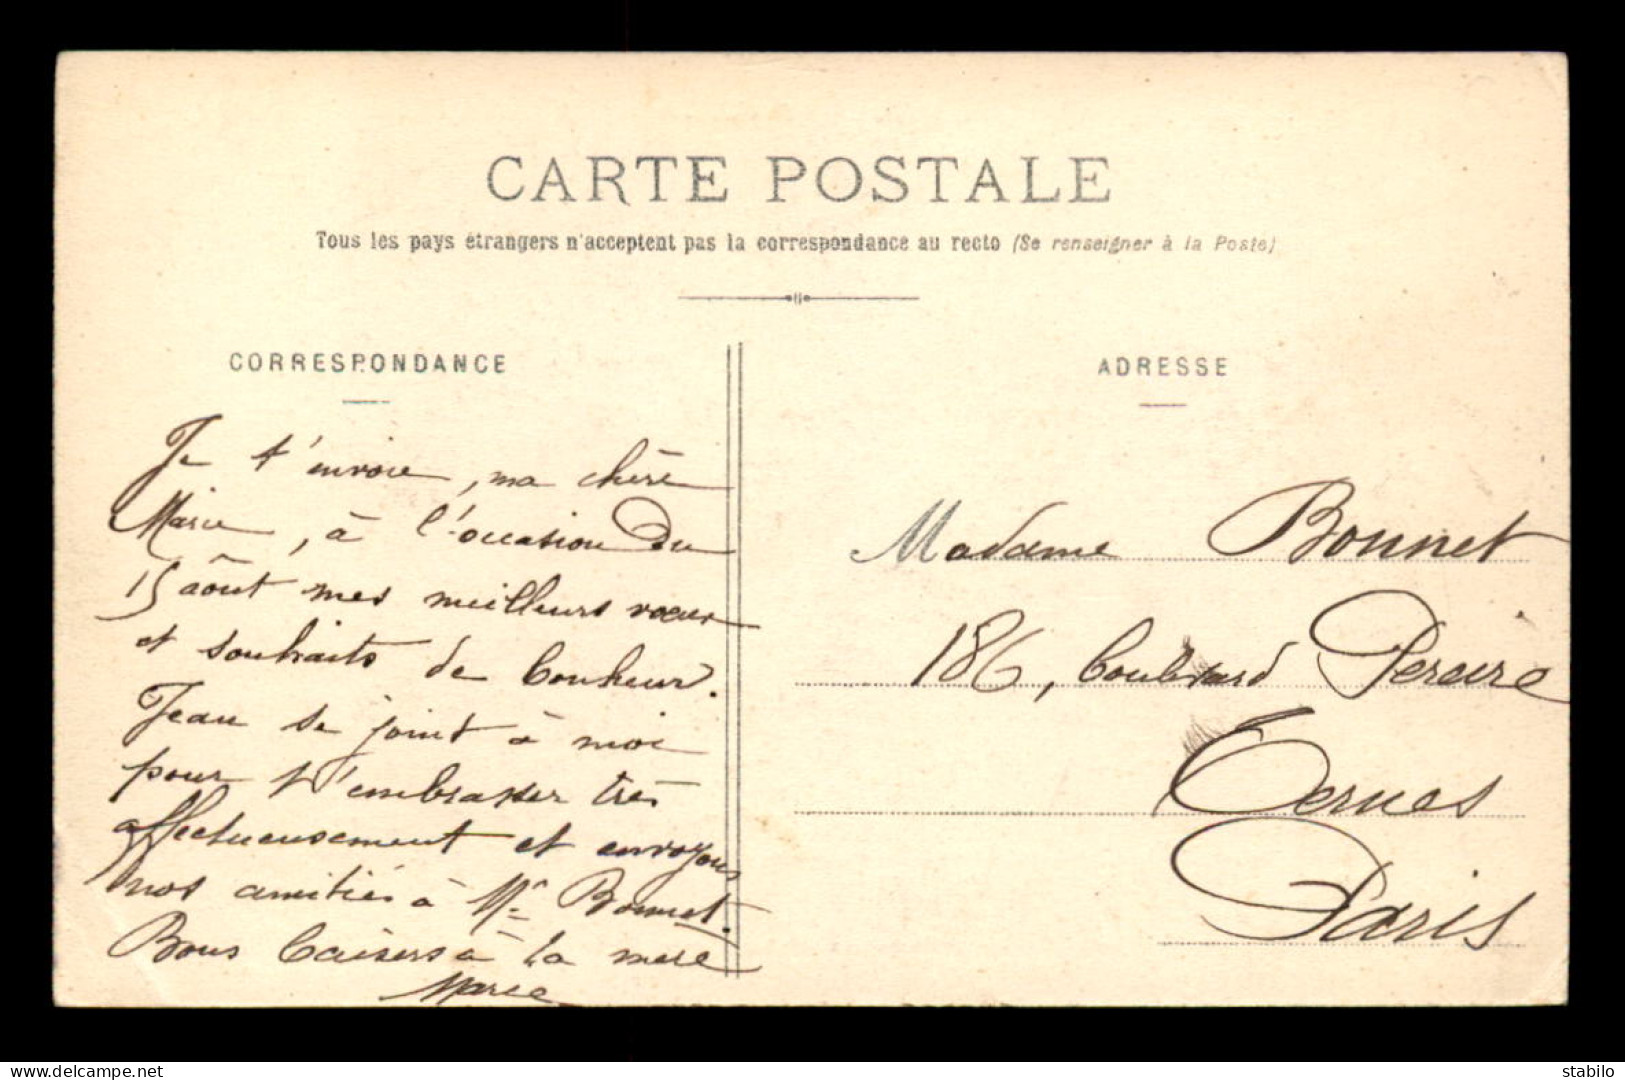 CARTE POSTALE
Tous les pays étrangers n'acceptent pas la correspondance au recto (Se renseigner à la Poste)
CORRESPONDANCE
Je t'envoie, ma chère
Marie, à l'occasion du
15 août mes meilleurs voeux
et souhaits de bonheur.
Jean se joint à moi
pour t'embrasser très
affectueusement et envoyons
nos amitiés à Mr Bonnet.
Bons baisers à ta mère
Marie
ADRESSE
Madame Bonnet
186, boulevard Pereire
Ternes
Paris
delcampe.net
stabilo